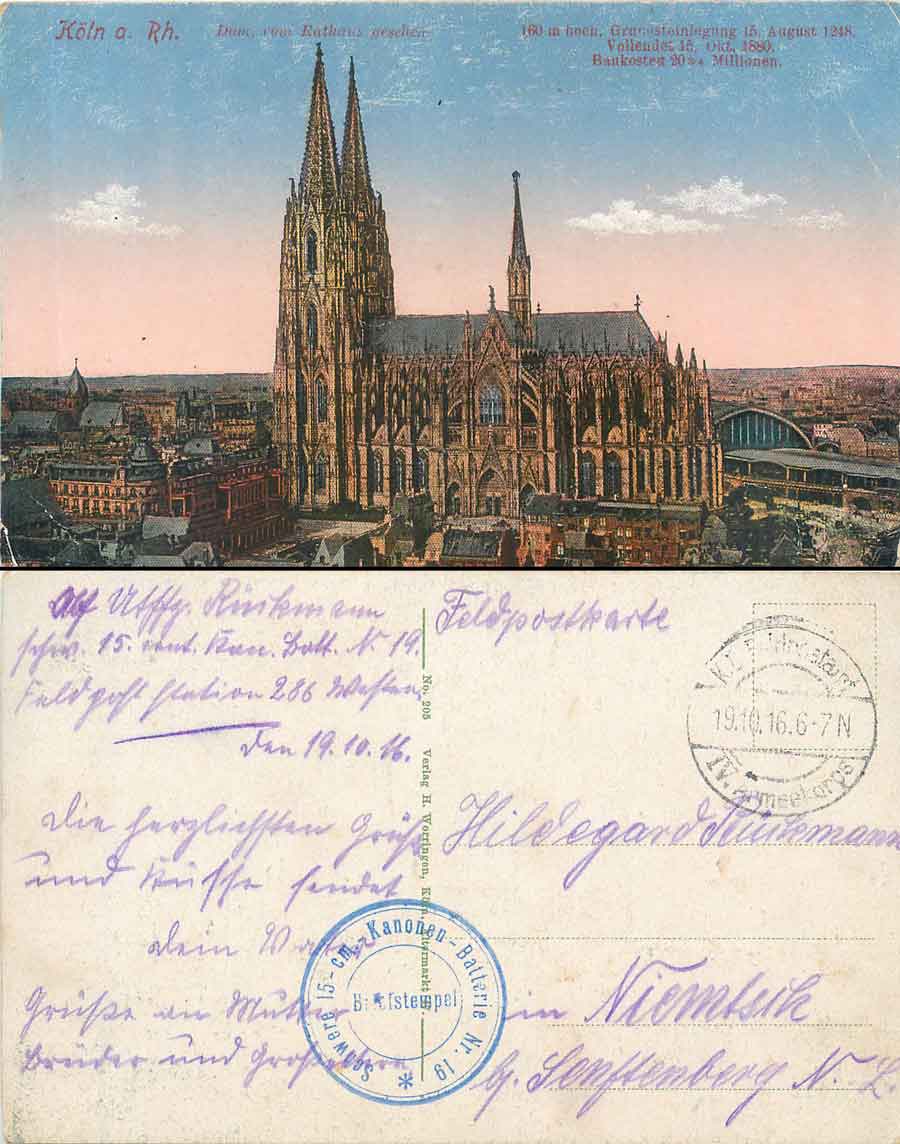 Köln a. Rh.
Dom, vom Rathaus gesehen.
160 m hoch, Grundsteinlegung 15. August 1248.
Vollendet 15. Okt. 1880.
Baukosten 20¾ Millionen.
Utffz.
schw. 15. cent. Kan. Batt. N. 19.
Feldpost station 286 Westen
den 19.10.16.
die herzlichsten Grüße
und Küsse sendet
dein Vater
Grüße an Mutter
Brüder und Großeltern
No. 205 Verlag H. Worringen, Köln, Altermarkt
Feldpostkarte
19.10.16.6-7N
IV. Armeekorps
Hildegard
in Niemtsik
b/. Senftenberg N. L.
Schwere 15-cm.-Kanonen-Batterie Nr. 19
Briefstempel